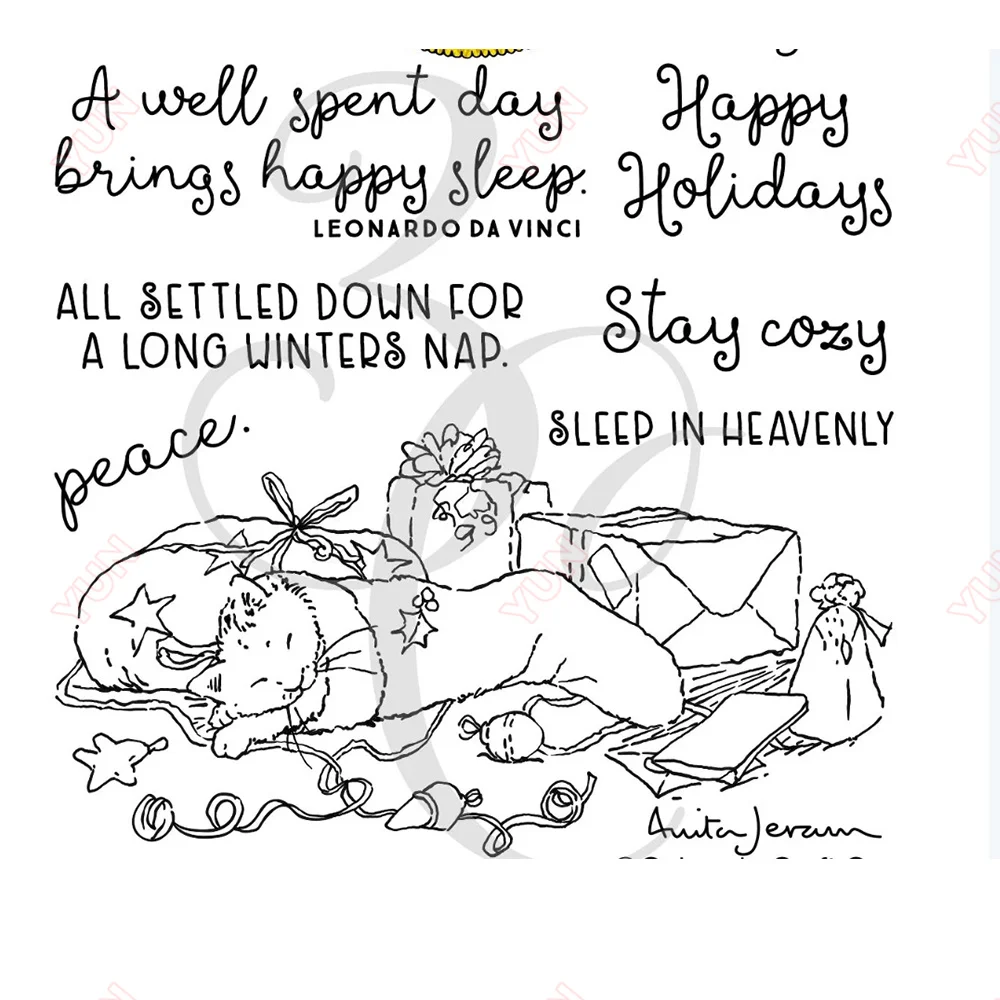 A well spent day
brings happy sleep.
LEONARDO DA VINCI
Happy
Holidays
ALL SETTLED DOWN FOR
A LONG WINTERS NAP.
Stay cozy
SLEEP IN HEAVENLY
peace.
Anita Jeram
YUN
YUN
YUN
YUN
YUN
YUN